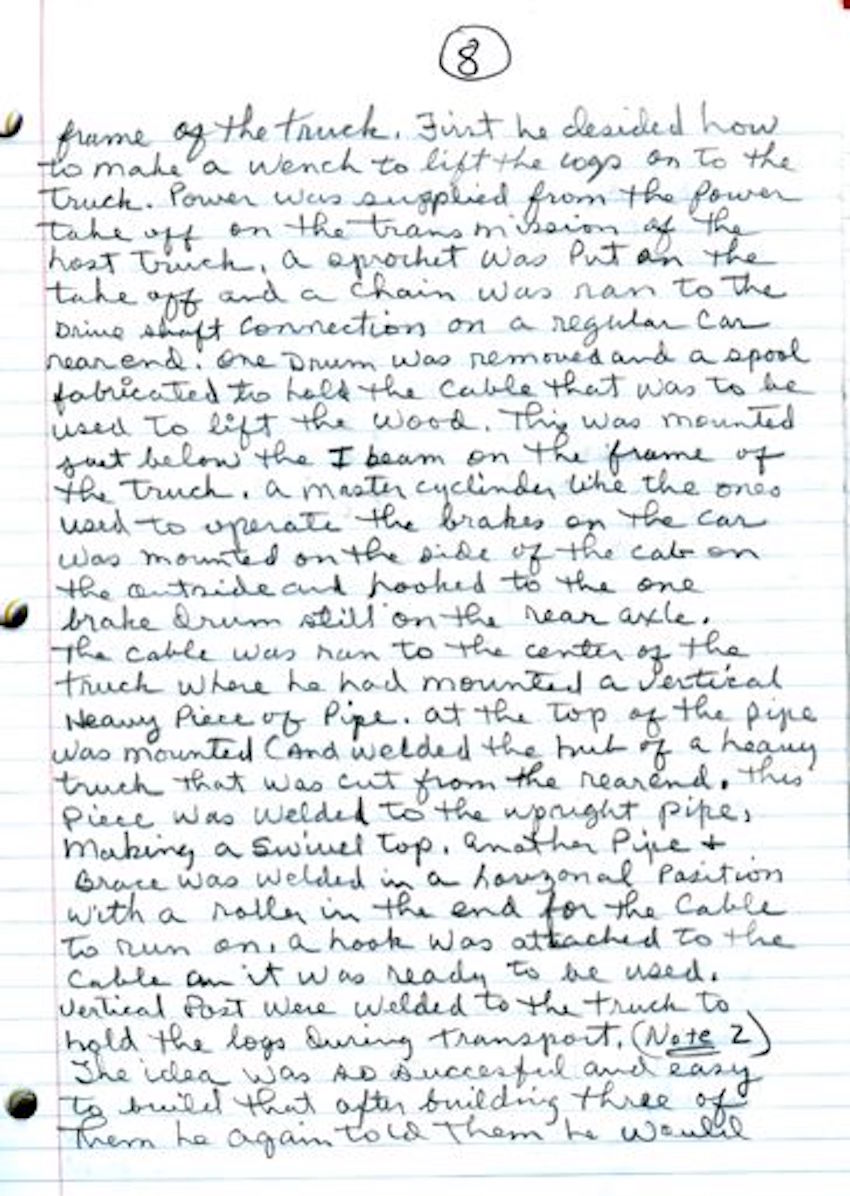 8
frame of the truck. First he desided how
to make a wench to lift the logs on to the
truck. Power was supplied from the power
take off on the transmission of the
host truck. a sprocket was Put on the
take off and a chain was ran to the
Drive shaft Connection on a regular Car
rearend. One Drum was removed and a spool
fabricated to hold the Cable that was to be
used to lift the wood. This was mounted
just below the I beam on the frame of
the truck. a master cyclinder like the ones
used to operate the brakes on the car
was mounted on the side of the cab on
the outside and hooked to the one
brake Drum still on the rear axle.
The cable was ran to the center of the
truck where he had mounted a vertical
Heavy Piece of Pipe. at the top of the pipe
was mounted (And welded the hub of a heavy
truck that was cut from the rearend. This
Piece was welded to the upright pipe,
Making a Swivel top. another Pipe +
Brace was welded in a horizonal Position
with a roller in the end for the Cable
to run on. a hook was attached to the
Cable an it was ready to be used.
Vertical Post were welded to the truck to
hold the logs During transport. (Note 2)
The idea was so succesful and easy
to build that after building three of
Them he again told Them he would